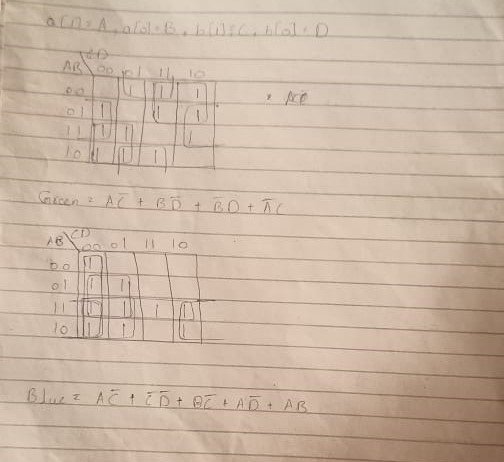 a[1] = A, a[0] = B, b[1] = C, b[0] = D
CD
AB 00 01 11 10
00 1 1 1
01 1 1 1
11 1 1 1
10 1 1 1
Green = AC̅ + BD̅ + B̅D + A̅C
CD
AB 00 01 11 10
00 1
01 1 1
11 1 1 1 1
10 1 1 1
Blue = AC̅ + C̅D̅ + BC̅ + AD̅ + AB